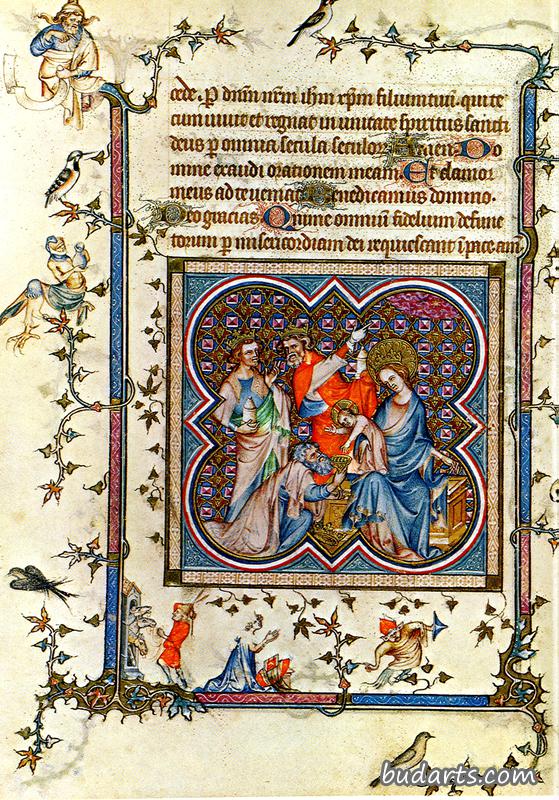 cede. P dnm nrm ihm xpm filium tuu. qui te
cum uiuit et regnat in unitate spiritus sancti
deus p omnia secula seculor. Amen. Do
mine exaudi orationem meam. Et clamor
meus ad te ueniat. Benedicamus domino.
Deo gracias. Anime omniu fidelium defunc
torum p misericordiam dei requiescant i pace. am
budarts.com